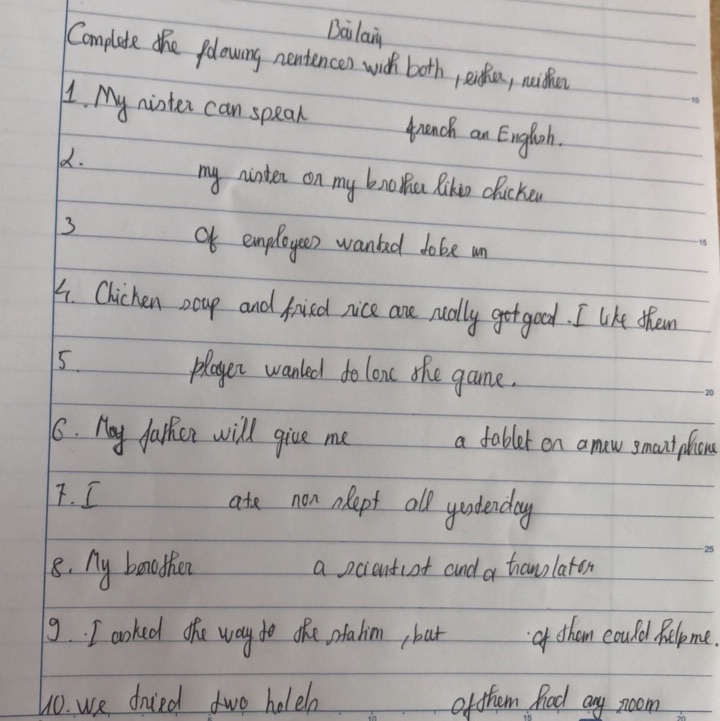 Bài làm
Complete the following sentences with both, either, neither
1. My sister can speak french an English.
2. my sister or my brother likes chicken
3 Of employees wanted to be un
4. Chicken soup and fried rice are really got good. I like them
5. player wanted to lose the game.
6. My father will give me a tablet or a new smart phone
7. I ate nor slept all yesterday
8. My borother a scientist and a translator
9. I asked the way to the station, but of them could help me.
10. We tried two hotels of them had any room